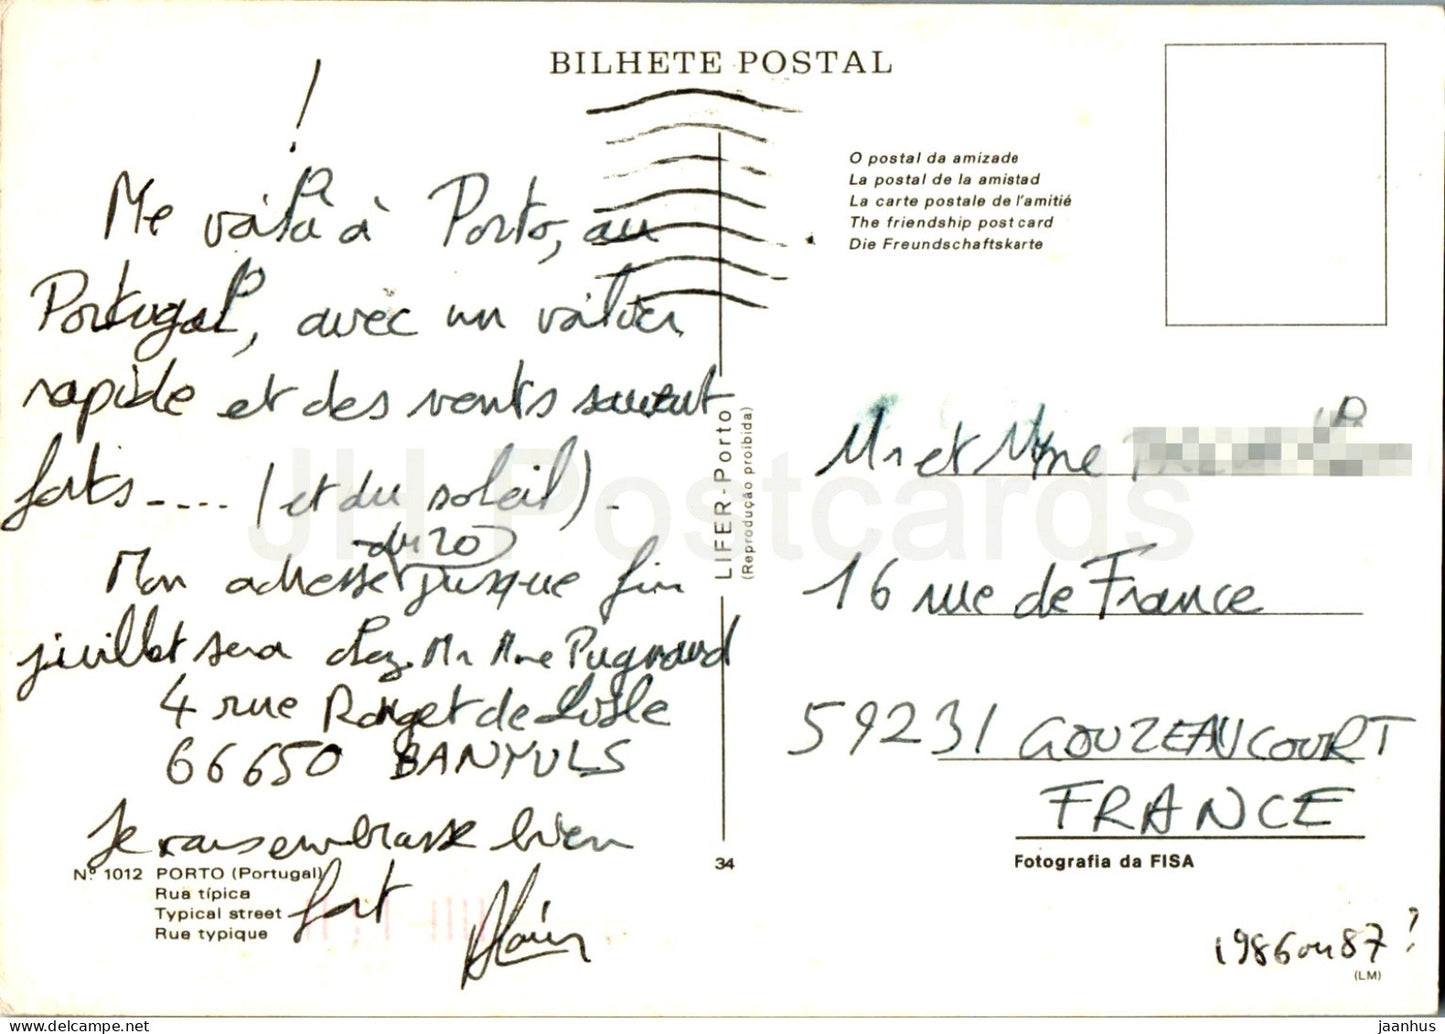 BILHETE POSTAL
!
Me voilà à Porto, au
Portugal, avec un voilier
rapide et des vents souvent
forts---.. (et du soleil).
du 20
Mon adresse jusque fin
juillet sera chez Mr Mme Pugnaud
4 rue Rouget de Lisle
66650 BANYULS
Je vous embrasse bien
fort Alain
Nº 1012 PORTO (Portugal)
Rua típica
Typical street
Rue typique
34
LIFER-Porto
(Reprodução proibida)
O postal da amizade
La postal de la amistad
La carte postale de l'amitié
The friendship post card
Die Freundschaftskarte
Mr et Mme
16 rue de France
59231 GOUZEAUCOURT
FRANCE
Fotografia da FISA
1986 ou 87 ?
(LM)
JH Postcards
www.delcampe.net
jaanhus